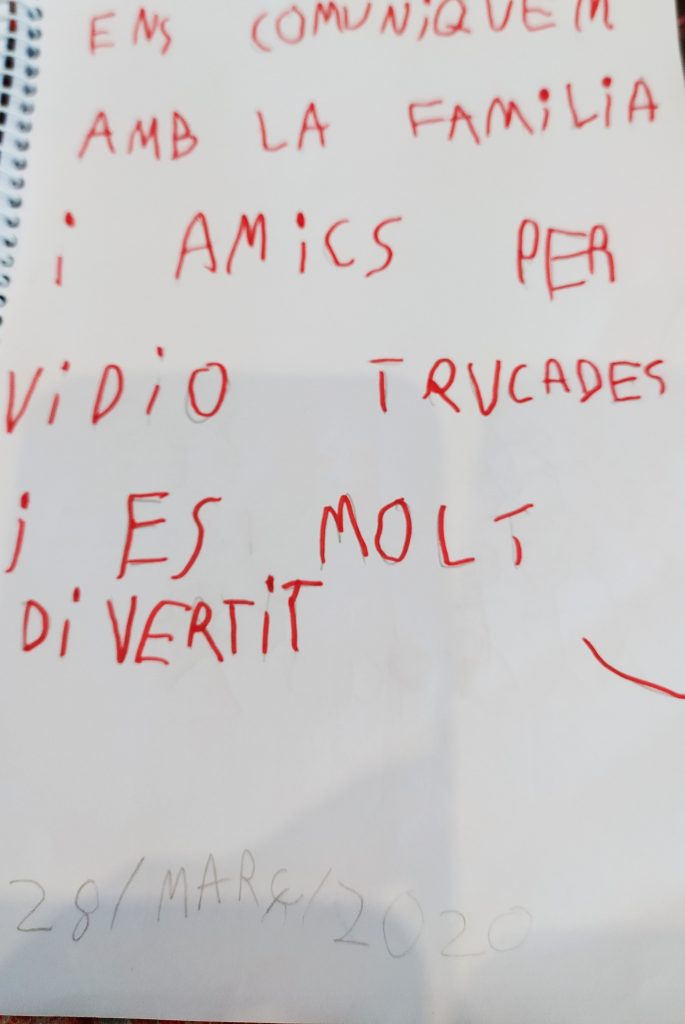 ENS COMUNiQUEM
AMB LA FAMiLiA
i AMiCS PER
ViDiO TRUCADES
i ES MOLT
DiVERTiT
28/MARÇ/2020